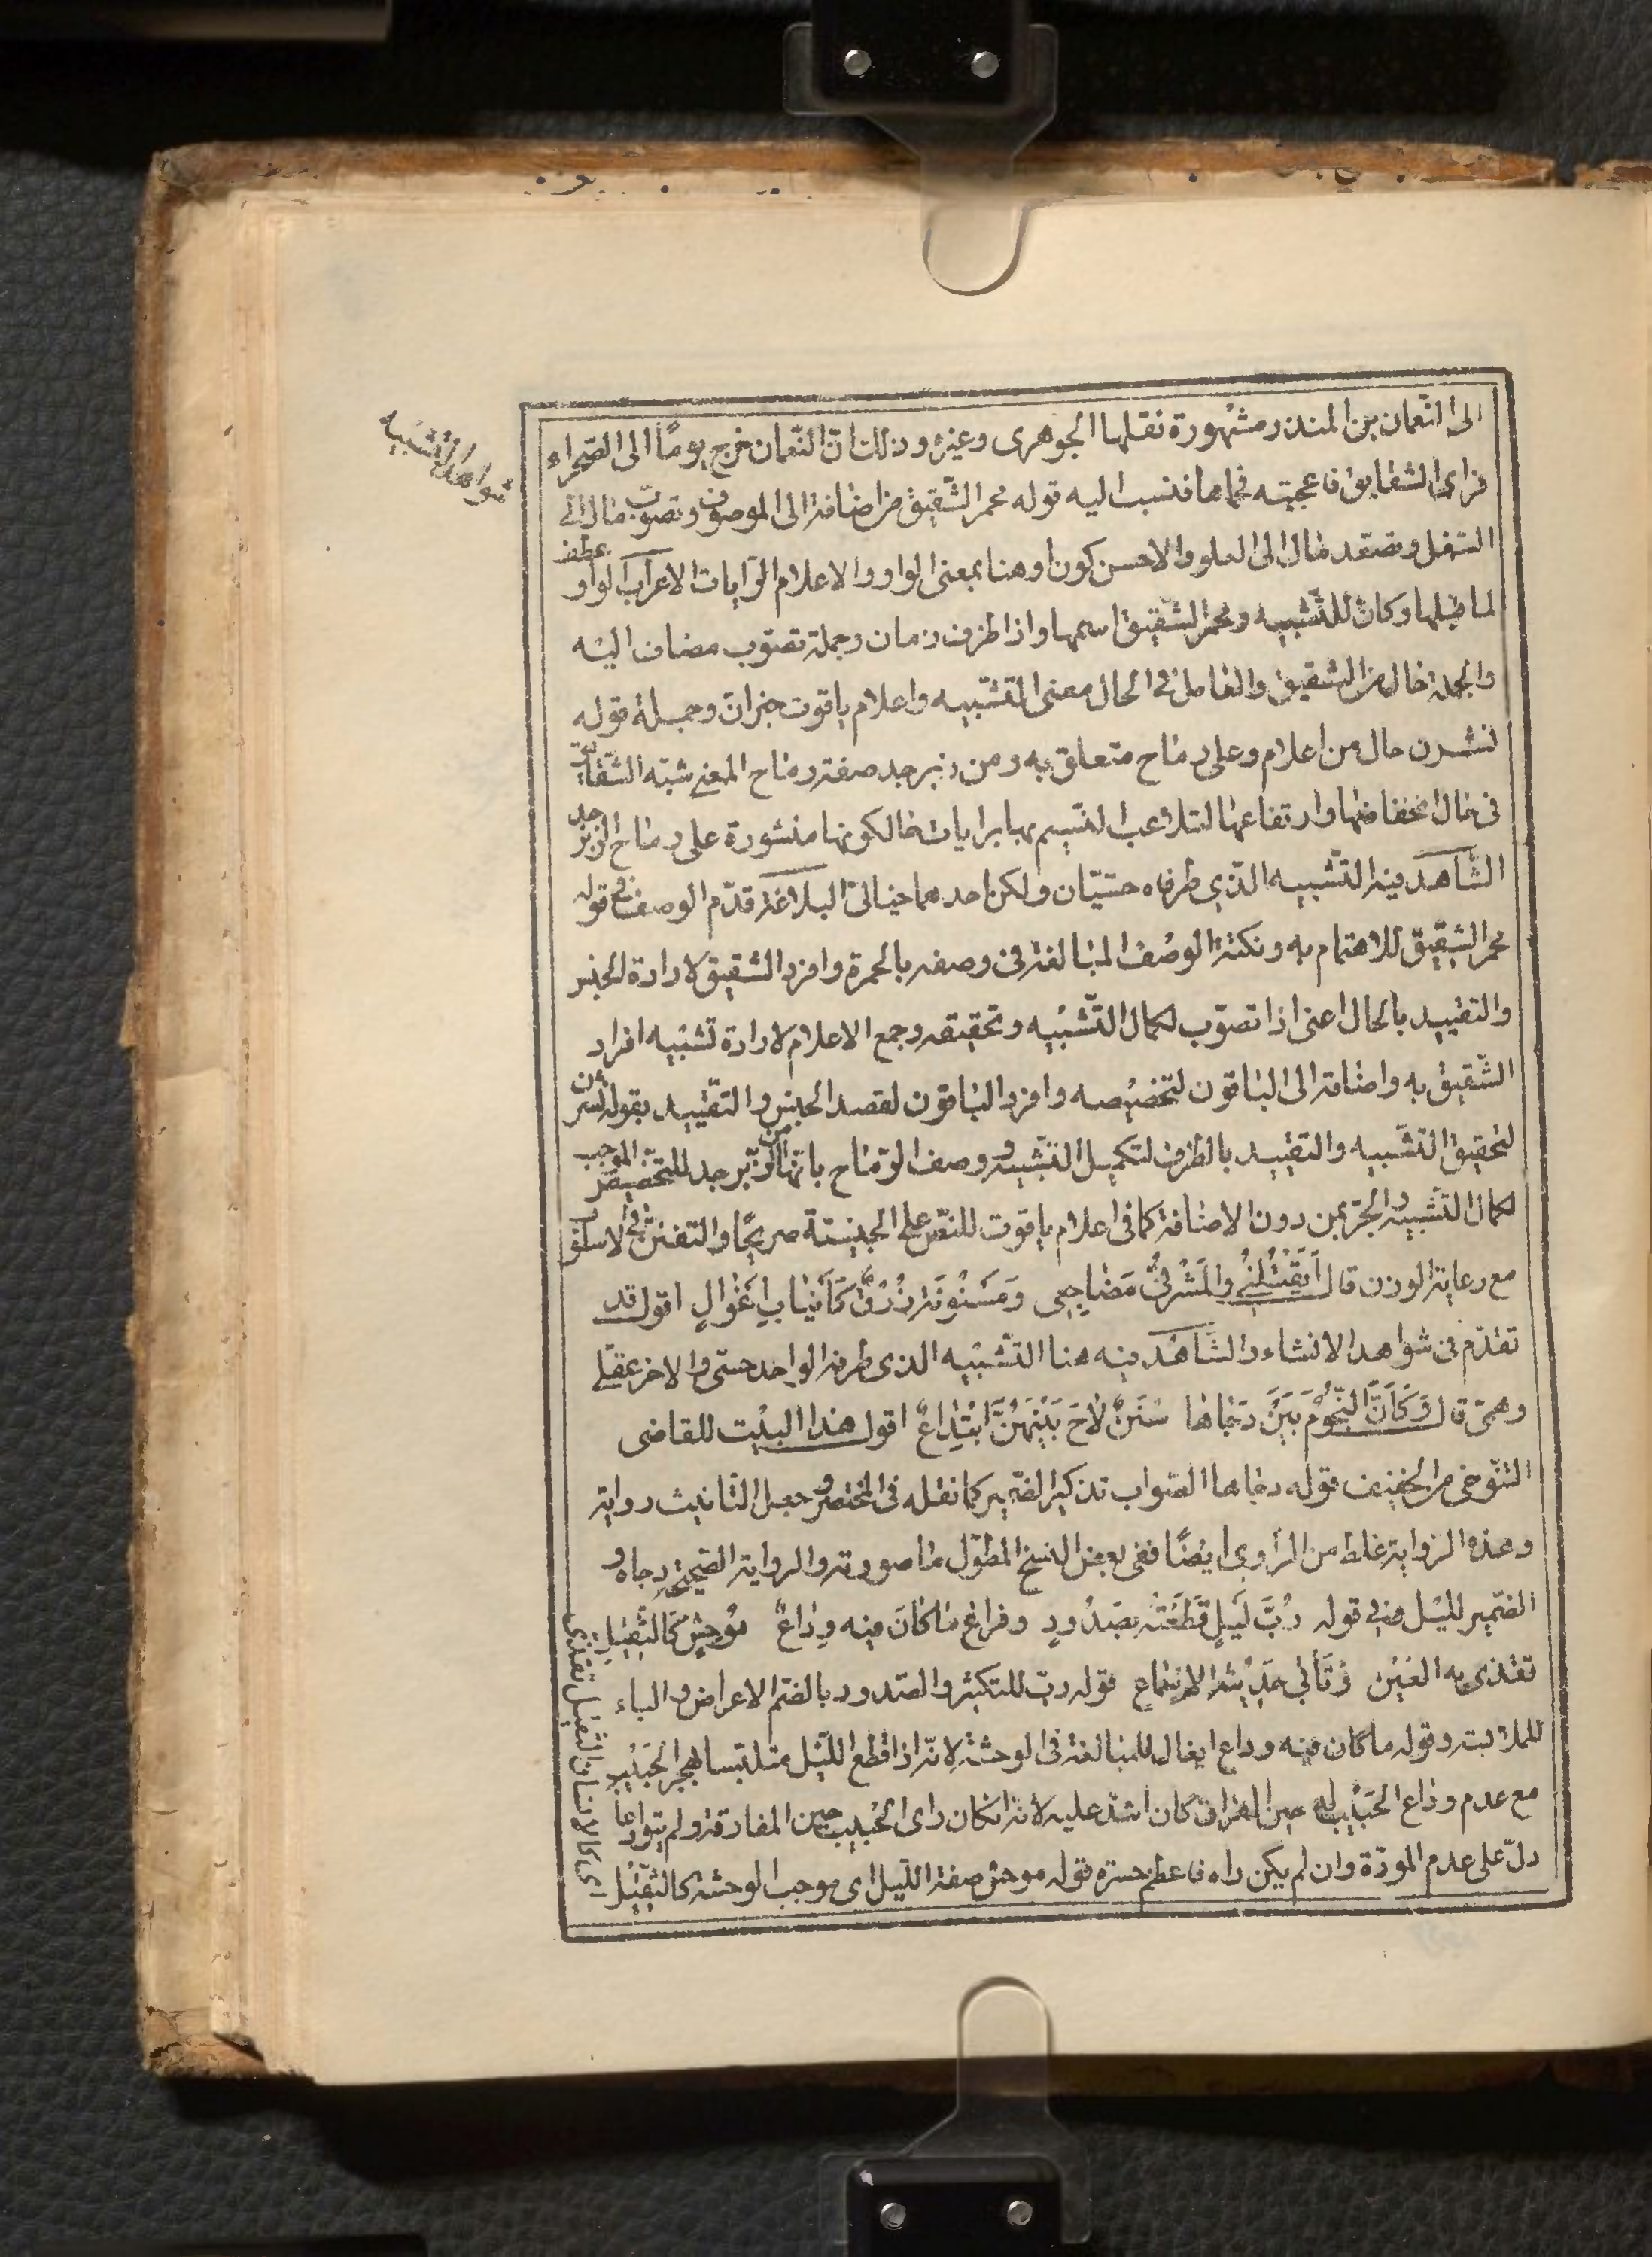 شواهد التشبيه
الى النّعمان بن المنذر مشهورة نقلها الجوهرى وغيره وذلك انّ النّعمان خرج يومًا الى الصّحراء
فراى الشقايق فاعجبته فحماها فنسب اليه قوله محمر الشّقيق من اضافة الى الموصوف وتصوّب مال الى
السّفل وتصعّد مال الى العلو والاحسن كون او هنا بمعنى الواو والاعلام الرّايات الاعراب الواو عطف
لما قبلها وكانّ للتّشبيه ومحمر الشّقيق اسمها واذا ظرف زمان وجملة تصوّب مضاف اليه
والجملة حال من الشقيق والعامل فى الحال معنى التّشبيه واعلام ياقوت خبر انّ وجملة قوله
نشرن حال من اعلام وعلى رماح متعلق به ومن زبرجد صفة رماح المعنى شبّه الشّقايق
فى حال انخفاضها وارتفاعها لتلاعب النّسيم بها برايات حالكونها منشورة على رماح الزبرجد
الشّاهد فيه التّشبيه الّذي طرفاه حسّيّان ولكن احدهما خيالىّ البلاغة قدّم الوصف فى قوله
محمر الشّقيق للاهتمام به ونكتة الوصف المبالغة فى وصفه بالحمرة وافرد الشّقيق لارادة الجنس
والتقييد بالحال اعنى اذا تصوّب لكمال التّشبيه وتحقيقه وجمع الاعلام لارادة تشبيه افراد
الشّقيق به واضافته الى الياقوت لتخصيصه وافرد الياقوت لقصد الجنس والتقييد بقوله نشرن
لتحقيق التّشبيه والتقييد بالظرف لتكميل التّشبيه ووصف الرّماح بانّها من الزّبرجد للتّخصيص الموجب
لكمال التّشبيه والجرّ بمن دون الاضافة كما فى اعلام ياقوت للنصّ على الجنسيّة صريحًا والتفنّن فى الاسلوب
مع رعاية الوزن قال اَيَقْتُلُنِي وَالمَشْرِفِيُّ مَضَاجِعِى وَمَسْنُونَةٌ زُرْقٌ كَاَنْيَابِ اَغْوَالِ اقول قد
تقدّم فى شواهد الانشاء والشّاهد فيه هنا التّشبيه الذى طرفه الواحد حسّى والاخر عقلى
وهمىّ قال وَكَاَنَّ النّجُومَ بَيْنَ دَجَاها سُنَنٌ لاحَ بَيْنَهُنَّ ابْتِدَاعٌ اقول هذا البيت للقاضى
التنّوخى من الخفيف قوله دجاها الصّواب تذكير الضّمير كما نقله فى المختصر وجعل التّانيث رواية
وهذه الرّواية غلط من الرّاوى ايضًا ففى بعض النسخ المطوّل ما صورته والرواية الصّحيحة دجاه و
الضّمير لليل فى قوله رُبَّ لَيلٍ قَطَعْتُه بصُدُودٍ وفراغ مَا كانَ فيه وِدَاعٌ مُوحِشٌ كَالثَّقِيلِ
تقذى به العَيْن وَتَأبى حَدِيْثَه الاِسْمَاع قوله ربّ للتكثير والصّدود بالضّم الاعراض والباء
للملابسة وقوله ما كان فيه وداع ايغال للمبالغة فى الوحشة لانّه اذا قطع اللّيل متلبّسا بهجر الحَبيْب
مع عدم وداع الحَبيْب له حين الفراق كان اشدّ عليه لانه ان كان راى الحَبيب حين المفارقة ولم يتوادعا
دلّ على عدم المودّة وان لم يكن راه فاعظم حسرة قوله موحش صفة اللّيل اى موجب الوحشة كالثقيل
اى كالانسان الثقيل تقذى